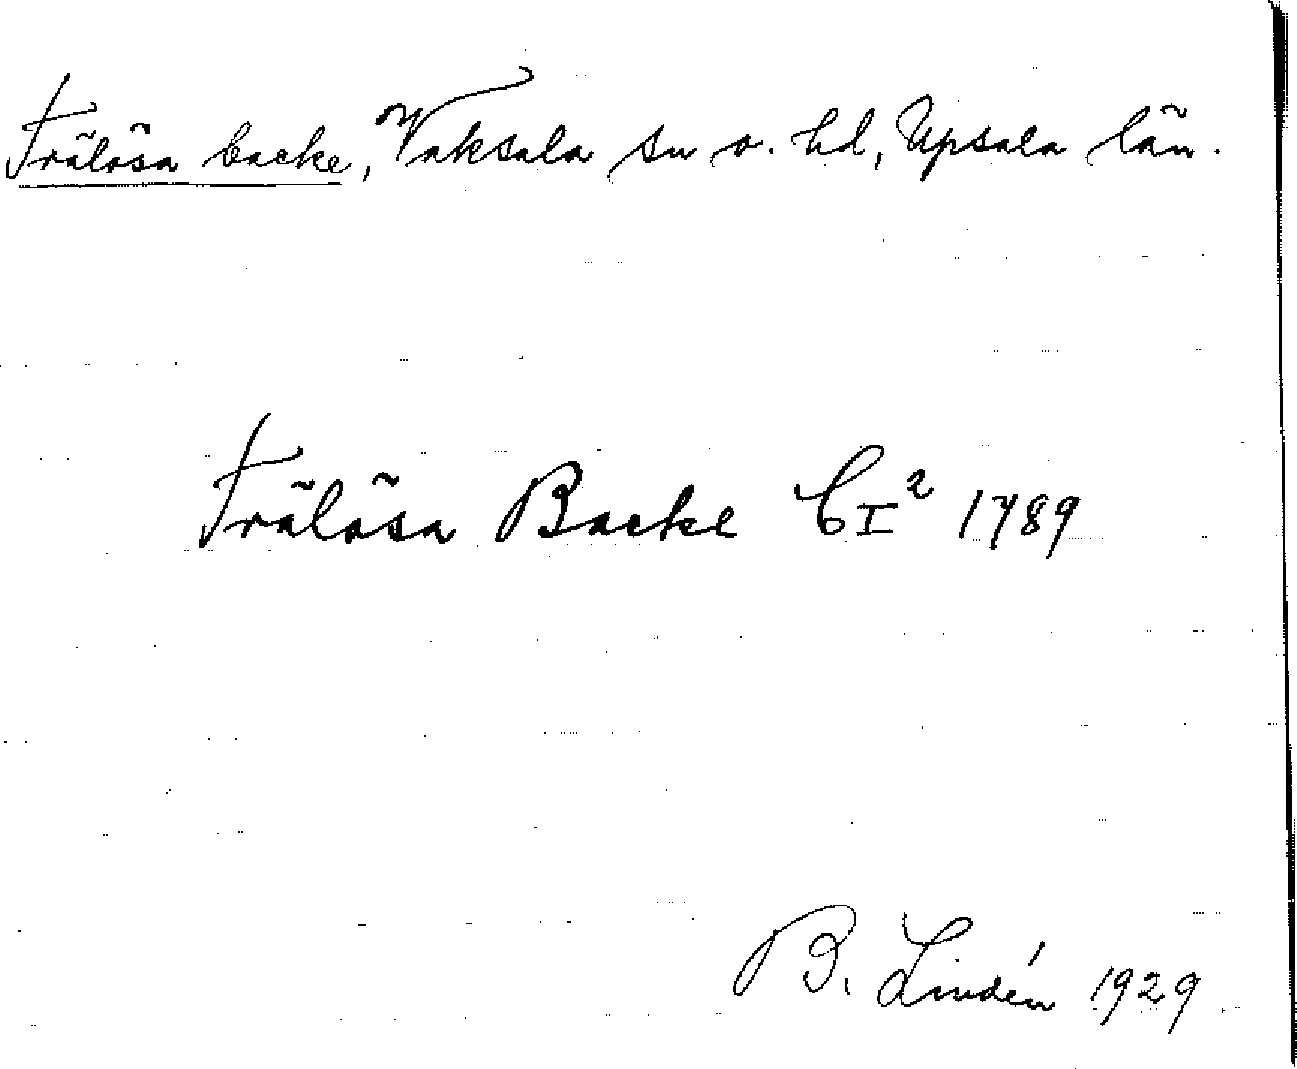 Frälösa backe, Vaksala sn o. hd, Upsala län.
Frälösa Backe CI² 1789
B. Lindén 1929